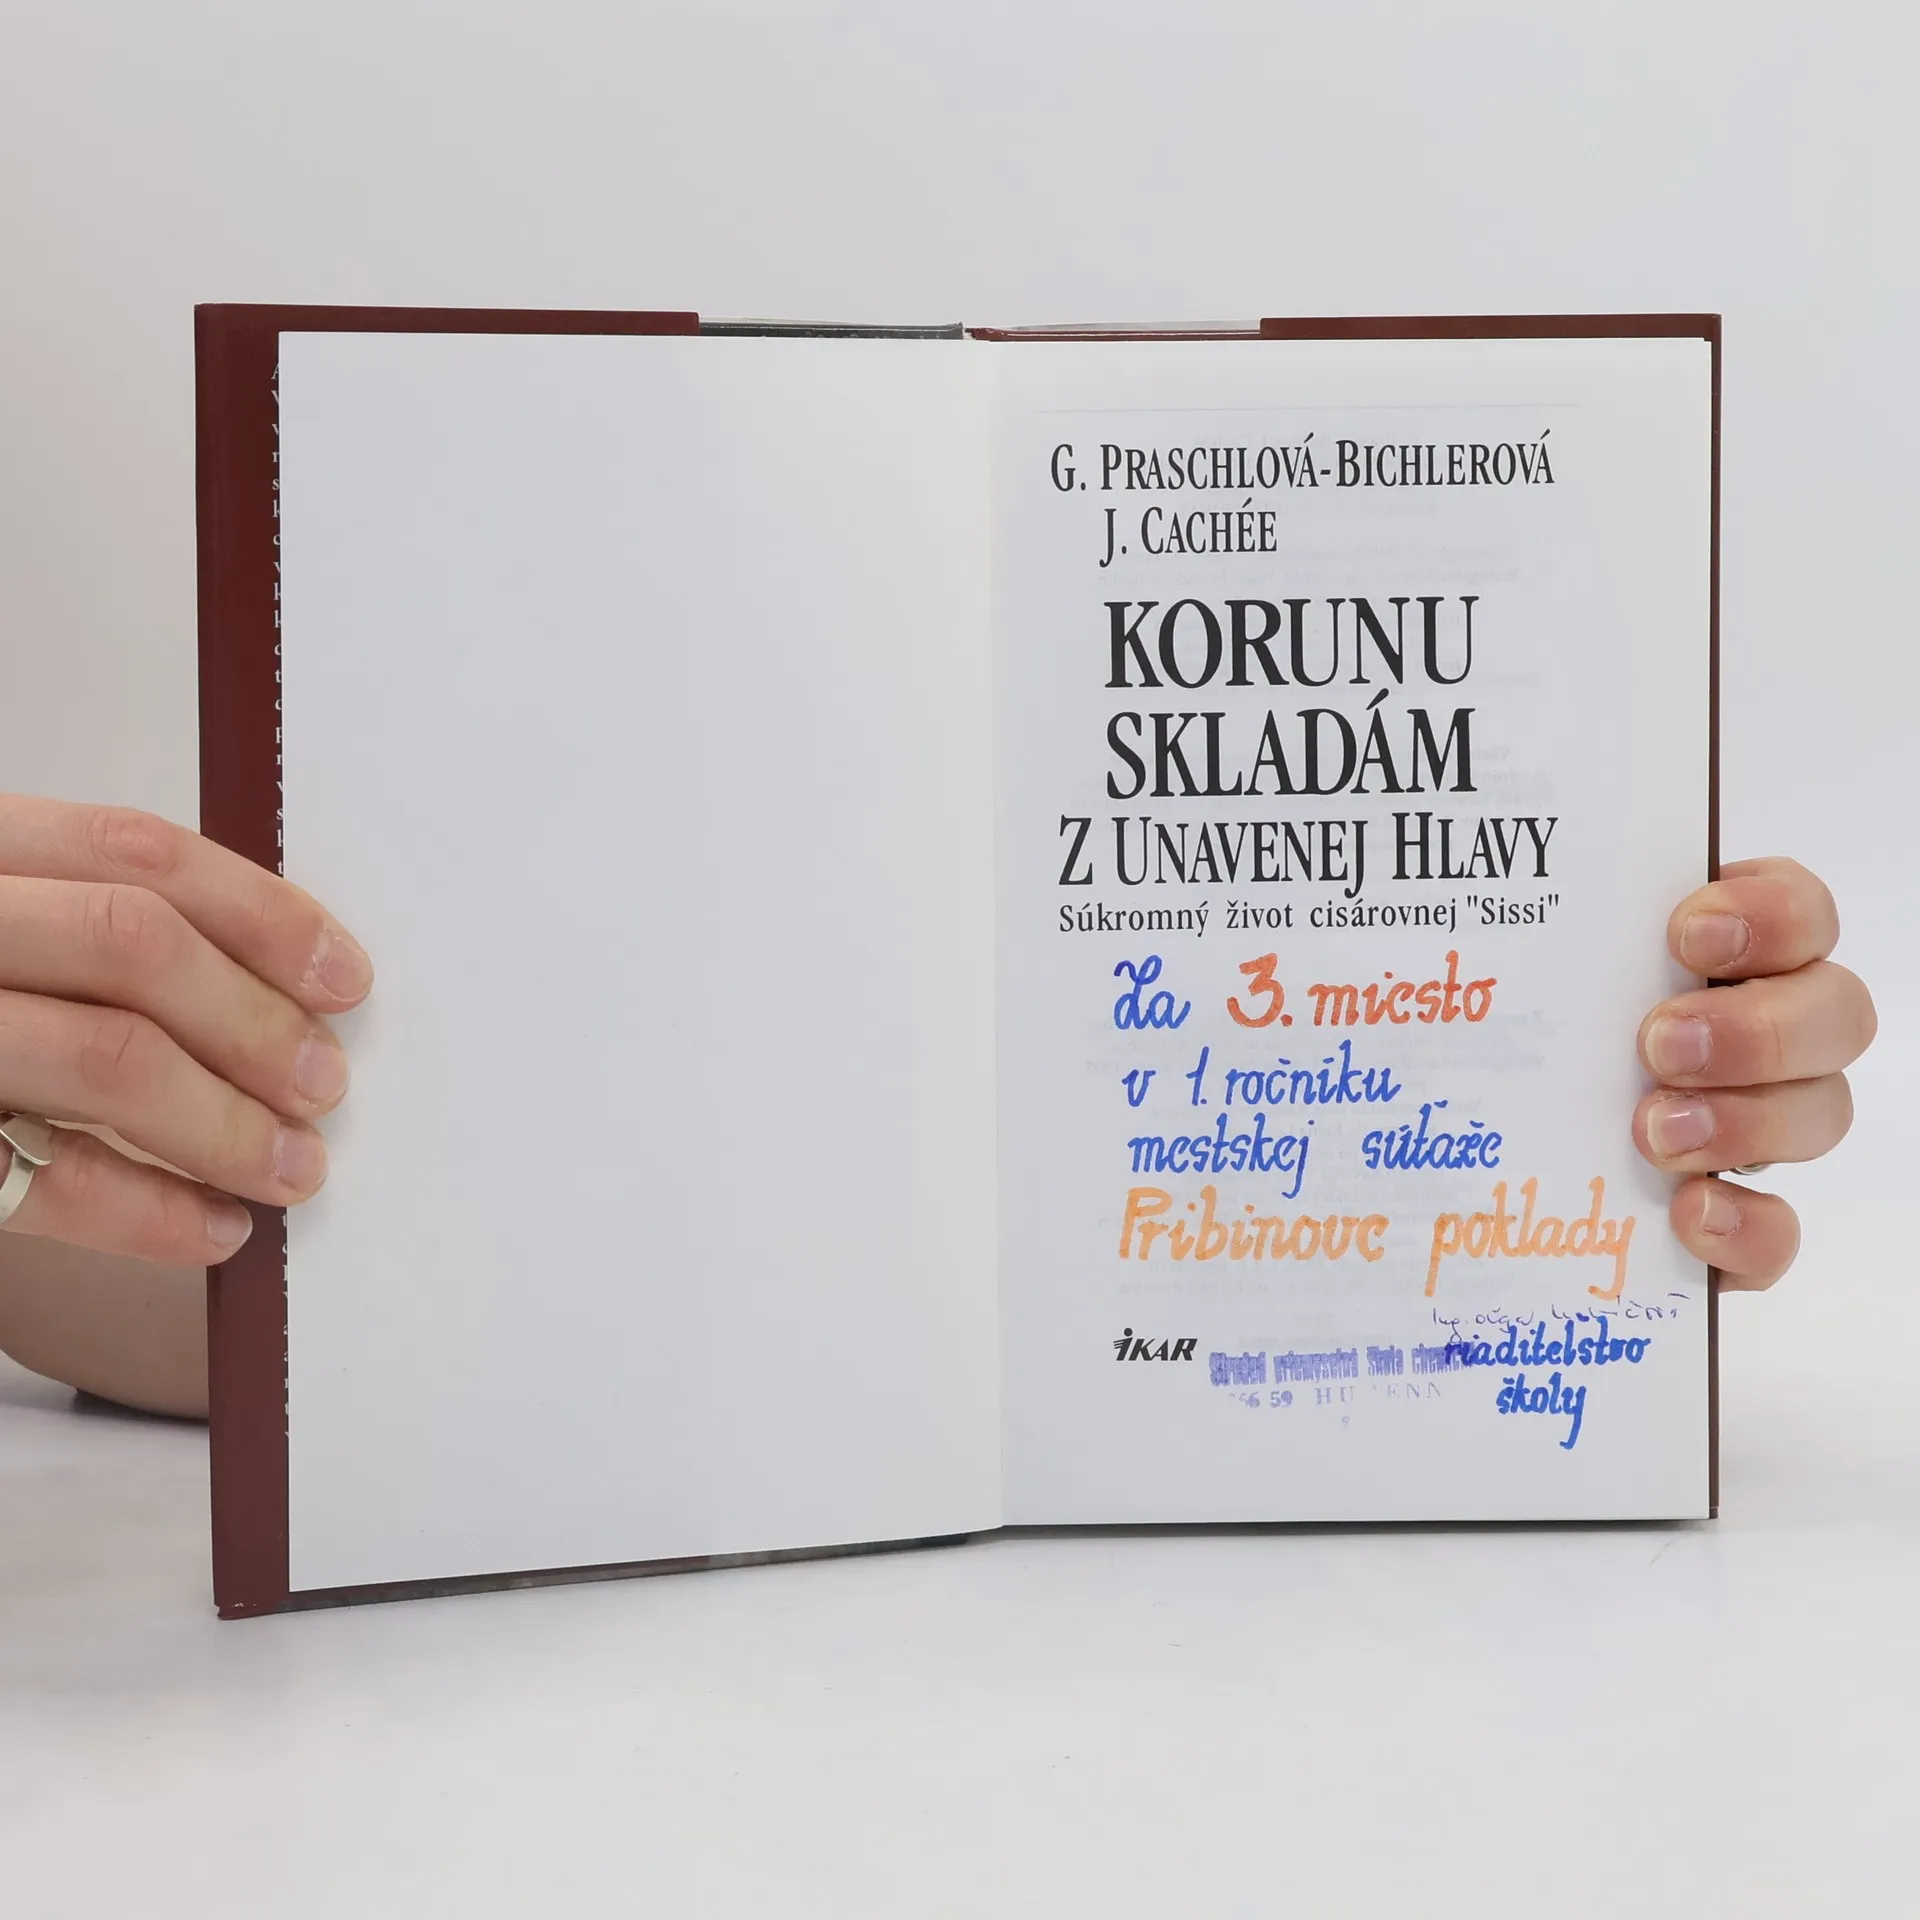 G. PRASCHLOVÁ-BICHLEROVÁ
J. CACHÉE
KORUNU
SKLADÁM
Z UNAVENEJ HLAVY
Súkromný život cisárovnej "Sissi"
Za 3. miesto
v 1. ročníku
mestskej súťaže
Pribinove poklady
Ing. Oľga
riaditeľstvo
školy
IKAR
Stredná priemyselná škola
59 HU